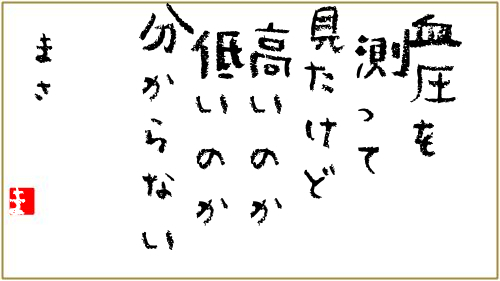 血圧を
測って
見たけど
高いのか
低いのか
分からない
まさ
ま